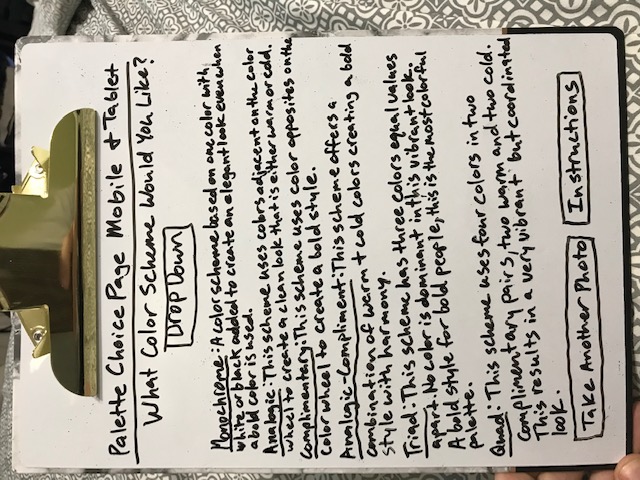 Palette Choice Page Mobile + Tablet
What Color Scheme Would You Like?
Drop Down
Monochrome: A color scheme based on one color with
white or black added to create an elegant look even when
a bold color is used.
Analogic: This scheme uses colors adjacent on the color
wheel to create a clean look that is either warm or cold.
Complimentary: This scheme uses color opposites on the
color wheel to create a bold style.
Analogic-Compliment: This scheme offers a
combination of warm + cold colors creating a bold
style with harmony.
Triad: This scheme has three colors equal values
apart. No color is dominant in this vibrant look.
A bold style for bold people, this is the most colorful
palette.
Quad: This scheme uses four colors in two
complimentary pairs, two warm and two cold.
This results in a very vibrant but coordinated
look.
Take Another Photo
Instructions